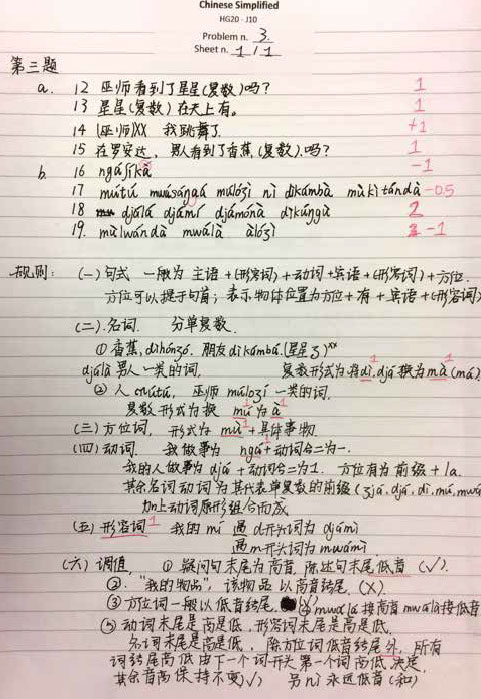 Chinese Simplified
HG20 - J10
Problem n. 3.
Sheet n. 1 / 1
第三题
a. 12 巫师看到了星星(复数)吗? 1
13 星星(复数)在天上有。 1
14 (巫师)XX 我跳舞了 +1
15 在罗安达, 男人看到了香蕉(复数)吗? 1
b. 16 ngájíkà -1
17 mútú mwásángá múlózì nì dikámbà mùkìtándà -0.5
18 djálá djámí djámónà dìkúngù 2
19. mùlwándà mwálà àlózì -1
规则: (一)句式 一般为 主语+(形容词)+动词+宾语+(形容词)+方位.
方位可以提于句首; 表示物体位置为方位+有+宾语+(形容词)
(二).名词. 分单复数.
①香蕉,dìhónzó. 朋友dìkámbá.(星星3)xx
djálà男人一类的词, 复数形式为将dì,djá换为mà(má)
②人 mútú, 巫师 múlózí 一类的词,
复数形式为换 mú为à
(三)方位词, 形式为 mù+具体事物.
(四)动词. 我做事为 ngá+动词合二为一.
我的人做事为 djá+动词合二为1. 方位有为前缀+la.
其余名词动词为其代表单复数的前缀(3já,djá,dì,mú,mwá
加上动词原形组合而成
(五)形容词 我的 mí 遇 d开头词为 djámì
遇m开头词为 mwámì
(六)调值, ①疑问句末尾为高音, 陈述句末尾低音 (√).
②."我的物品", 该物品以高音结尾. (X).
③方位词一般以低音结尾. mwálá接高音 mwálà接低音
⑤动词末尾是高是低, 形容词末尾是高是低,
名词末尾是高是低, 除方位词低音结尾外, 所有
词结尾高低由下一个词开头第一个词高低决定,
其余音高保持不变)√) 另 nì 永远低音 (和)